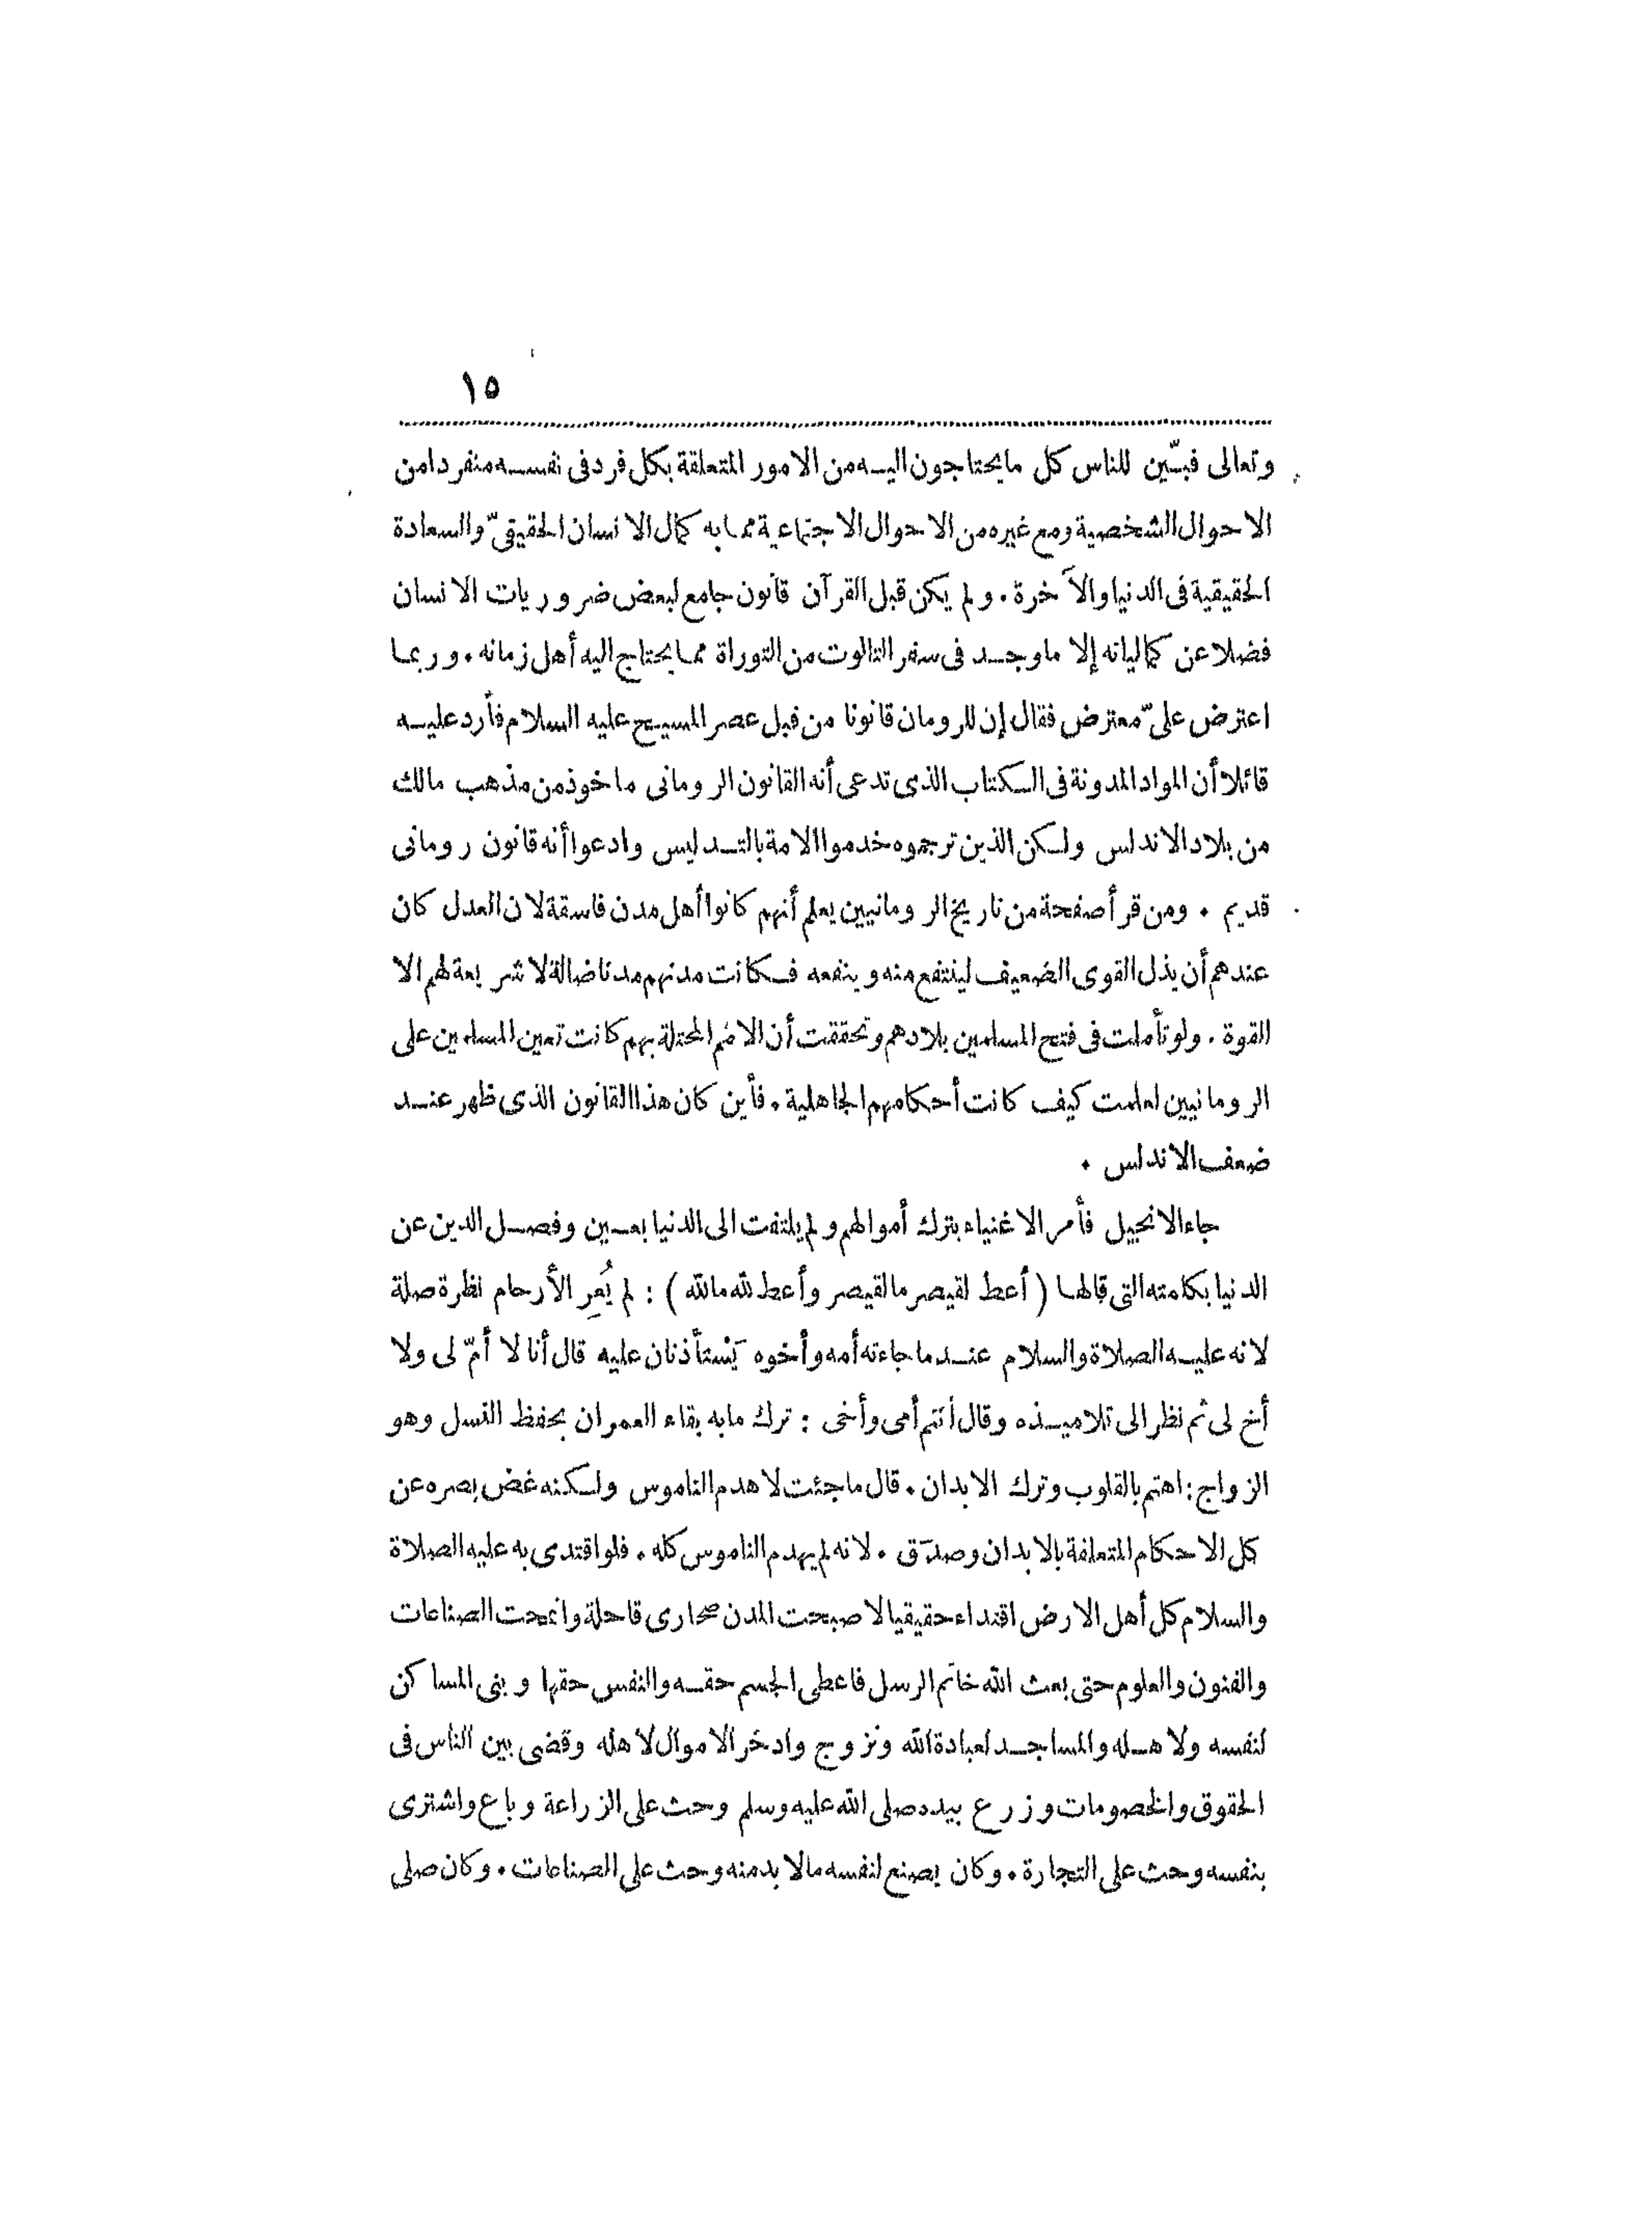 ١٥
وتعالى فبيّن للناس كل ما يحتاجون اليه من الامور المتعلقة بكل فرد فى نفسه منفردا من
الاحوال الشخصية ومع غيره من الاحوال الاجتماعية مما به كمال الانسان الحقيقىّ والسعادة
الحقيقية فى الدنيا والآخرة . ولم يكن قبل القرآن قانون جامع لبعض ضروريات الانسان
فضلا عن كمالياته إلا ما وجد فى سفر التالوت من التوراة مما يحتاج اليه أهل زمانه . وربما
اعترض علىّ معترض فقال إن للرومان قانونا من قبل عصر المسيح عليه السلام فأرد عليه
قائلا أن المواد المدونة فى الكتاب الذى تدعى أنه القانون الرومانى ماخوذ من مذهب مالك
من بلاد الاندلس ولكن الذين ترجموه خدموا الامة بالتدليس وادعوا أنه قانون رومانى
قديم . ومن قرأ صفحة من تاريخ الرومانيين يعلم أنهم كانوا أهل مدن فاسقة لان العدل كان
عندهم أن يذل القوى الضعيف لينتفع منه وينفعه فكانت مدنهم مدنا ضالة لا شريعة لهم الا
القوة . ولو تأملت فى فتح المسلمين بلادهم وتحققت أن الامم المحتلة بهم كانت تعين المسلمين على
الرومانيين لعلمت كيف كانت أحكامهم الجاهلية . فأين كان هذا القانون الذى ظهر عند
ضعف الاندلس .
جاء الانجيل فأمر الاغنياء بترك أموالهم ولم يلتفت الى الدنيا بعين وفصل الدين عن
الدنيا بكلمته التى قالها ( أعط لقيصر ما لقيصر وأعط لله ما لله ) : لم يُعِرِ الأرحام نظرة صلة
لانه عليه الصلاة والسلام عند ما جاءته أمه وأخوه يَسْتأذنان عليه قال أنا لا أمّ لى ولا
أخ لى ثم نظر الى تلاميذه وقال أنتم أمى وأخى : ترك ما به بقاء العمران بحفظ النسل وهو
الزواج : اهتم بالقلوب وترك الابدان . قال ما جئت لاهدم الناموس ولكنه غض بصره عن
كل الاحكام المتعلقة بالابدان وصدق . لانه لم يهدم الناموس كله . فلو اقتدى به عليه الصلاة
والسلام كل أهل الارض اقتداء حقيقيا لاصبحت المدن صحارى قاحلة وانمحت الصناعات
والفنون والعلوم حتى بعث الله خاتم الرسل فاعطى الجسم حقه والنفس حقها وبنى المساكن
لنفسه ولاهله والمساجد لعبادة الله وتزوج وادخر الاموال لاهله وقضى بين الناس فى
الحقوق والخصومات وزرع بيده صلى الله عليه وسلم وحث على الزراعة وباع واشترى
بنفسه وحث على التجارة . وكان يصنع لنفسه ما لا بد منه وحث على الصناعات . وكان صلى